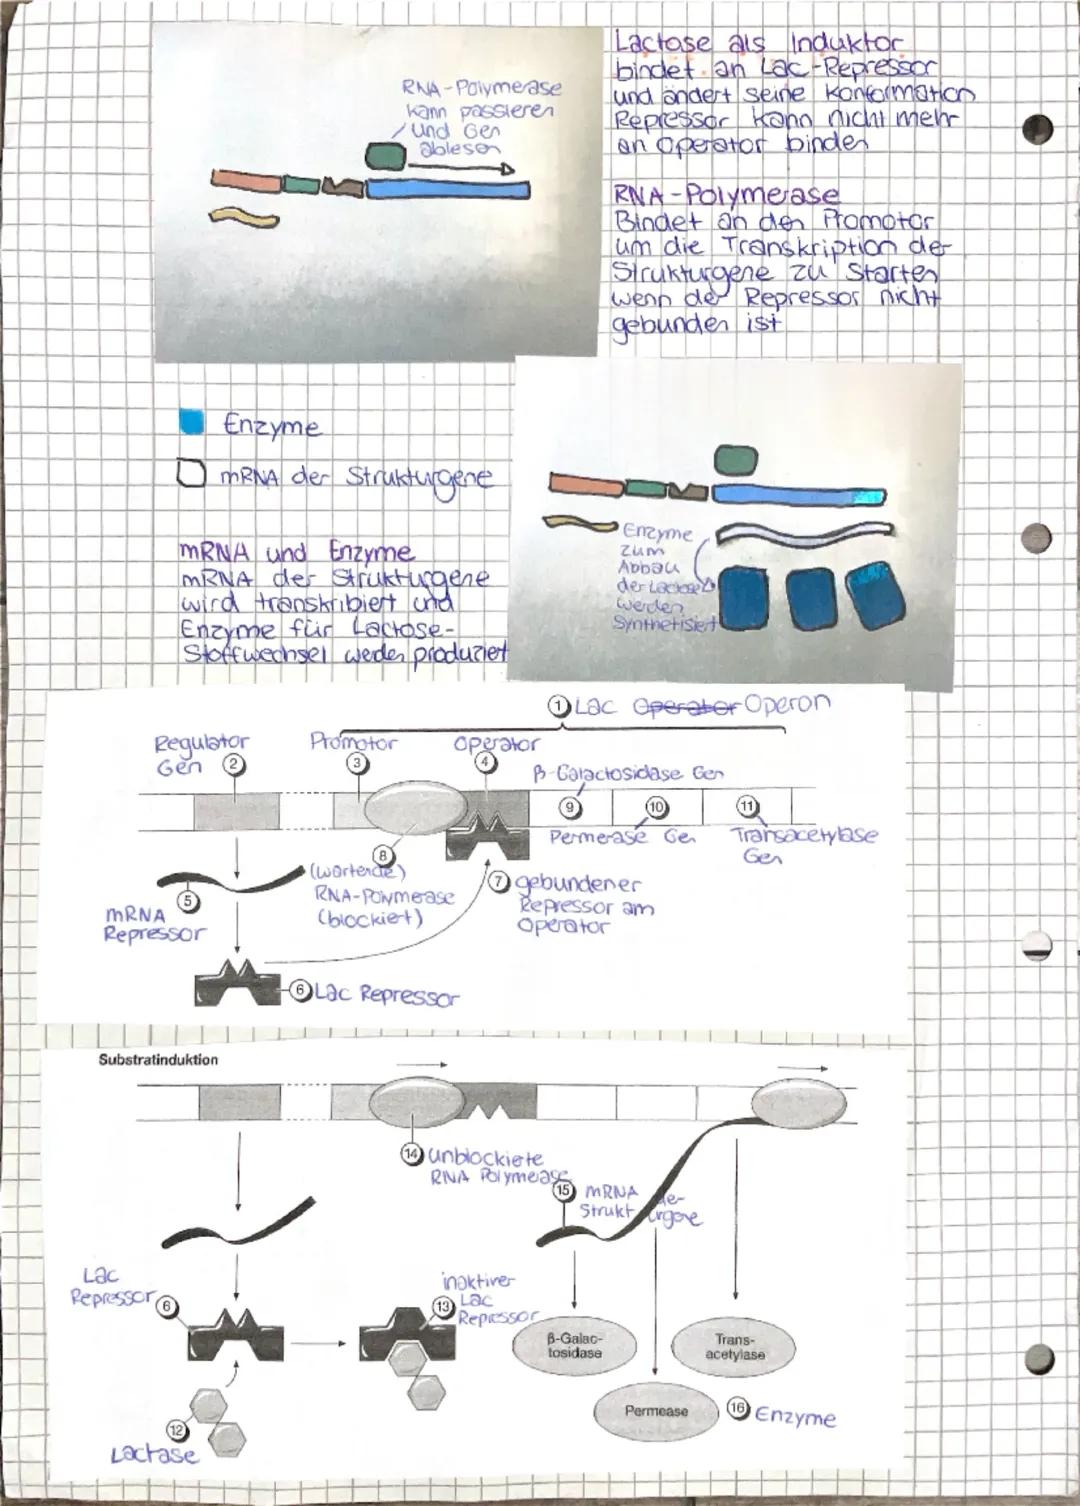 RNA-Polymerase
kann passieren
und Gen
ablesen
Lactose als Induktor
bindet an Lac-Repressor
und ändert seine Konformation
Repressor kann nicht mehr
an Operator binden
RNA-Polymerase
Bindet an den Promotor
um die Transkription der
Strukturgene zu Starten
wenn der Repressor nicht
gebunden ist
Enzyme
mRNA der Strukturgene
mRNA und Enzyme
mRNA der Strukturgene
wird transkribiert und
Enzyme für Lactose-
Stoffwechsel werden produziert
Enzyme
zum
Abbau
der Lactose
werden
Synthetisiert
1 Lac Operator Operon
Regulator
Gen 2
Promotor
3
Operator
4
β-Galactosidase Gen
9 10 11
Permerase Gen
Transacetylase
Gen
8
(wartende)
RNA-Polymerase
(blockiert)
7 gebundener
Repressor am
Operator
5
mRNA
Repressor
6 Lac Repressor
Substratinduktion
14 unblockierte
RNA Polymerase
15 mRNA der
Strukturgene
Lac
Repressor
6
inaktiver
13 Lac
Repressor
β-Galac-
tosidase
Trans-
acetylase
Permease
16 Enzyme
12
Lactase